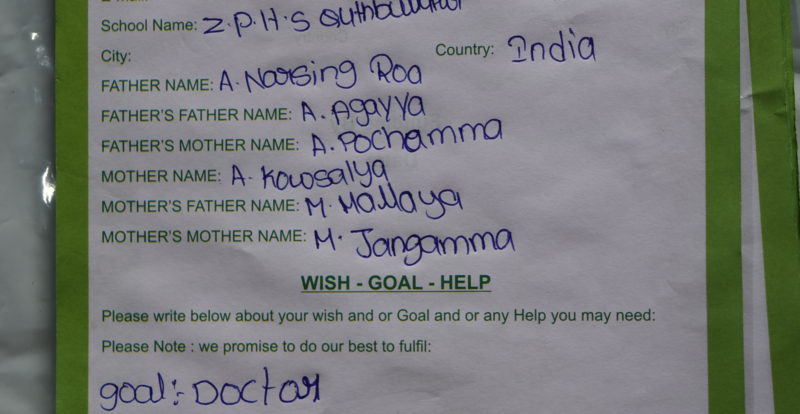 School Name: Z.P.H.S Quthbullapur
City: Country: India
FATHER NAME: A. Narsing Roa
FATHER'S FATHER NAME: A. Agayya
FATHER'S MOTHER NAME: A. Pochamma
MOTHER NAME: A. Kowsalya
MOTHER'S FATHER NAME: M. Mallaya
MOTHER'S MOTHER NAME: M. Jangamma
WISH - GOAL - HELP
Please write below about your wish and or Goal and or any Help you may need:
Please Note : we promise to do our best to fulfil:
goal:- Doctor